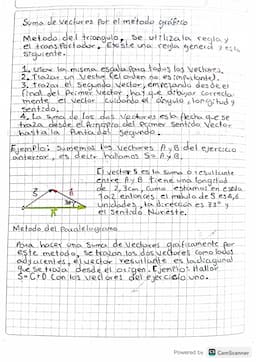 Suma de vectores por el método gráfico
Metodo del triangulo, Se utiliza la regla y
el transportador. Existe una regla general y es la
siguiente.
1. Usar la misma escala para todos los vectores.
2. Trazar un Vector (el orden no es importante).
3. Trazar el segundo vector, empezando desde el
final del Primer Vector, hay que dibujar correcta-
mente el vector cuidando el ángulo, longitud y
sentido.
4. La Suma de los dos Vectores es la flecha que se
traza desde el Principio del Primer Sentido Vector
hasta la Punta del segundo.
Ejemplo: Sumemos los vectores A y B del ejercicio
anterior, es decir hallamos S = A y B.
El vector S es la suma o resultante
entre A y B tiene una longitud
de 2,3cm, Como estamos en escala
1a2 entonces, el modulo de S es 4,6
unidades, la dirección es 33° y
el sentido Noreste.
Metodo del Paralelogramo
Para hacer una Suma de vectores gráficamente por
este metodo, se trazan los dos vectores como lados
adyacentes, el vector resultante es la diagonal
que se traza desde el origen. Ejemplo: Hallar
S=C+D Con los vectores del ejercicio uno.
Powered by CS CamScanner